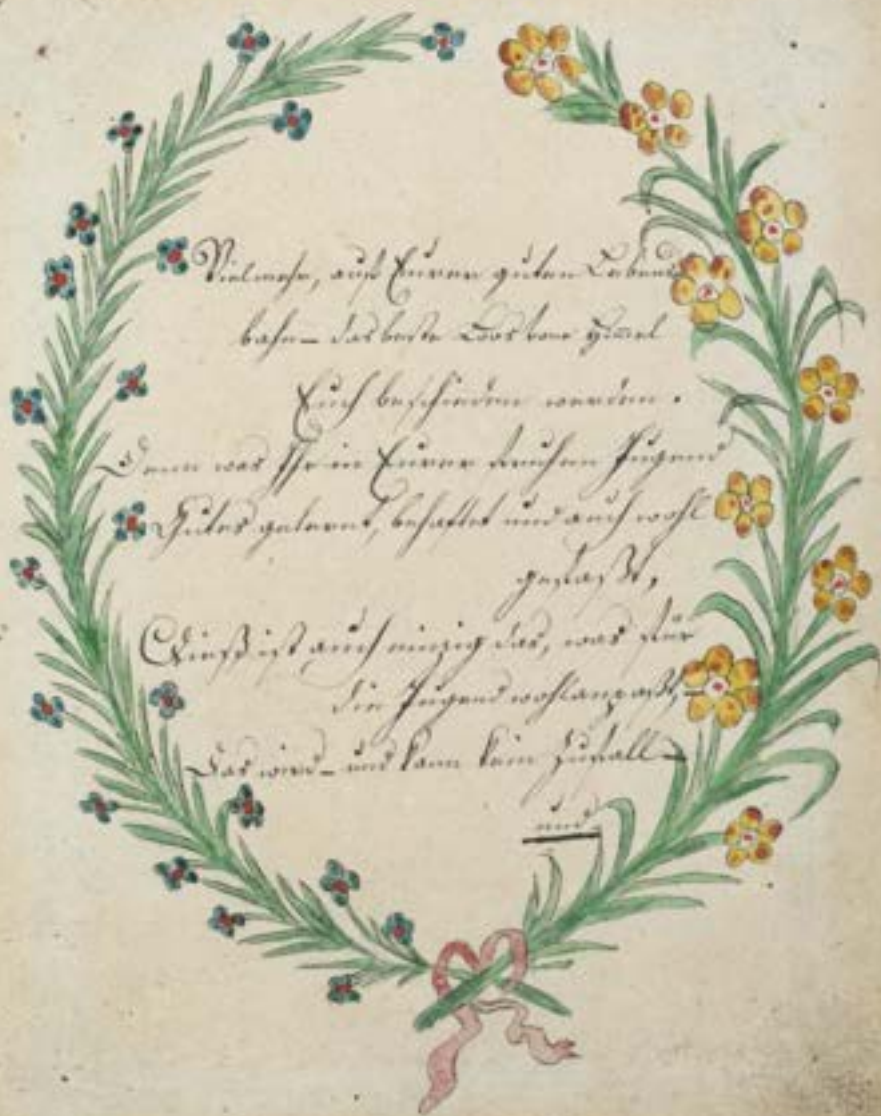 Vielmehr, auf Eurer guten Lebens
bahn – das beste Loos vom Himel
Euch beschieden werden.
Denn was Ihr in Eurer Jugend
Gutes gelernt, und auch wohl
gefaßt,
Dieß ist auch einzig das, was für
die Jugend wohl anpaßt, –
Das wird – und kann kein Zufall –
und